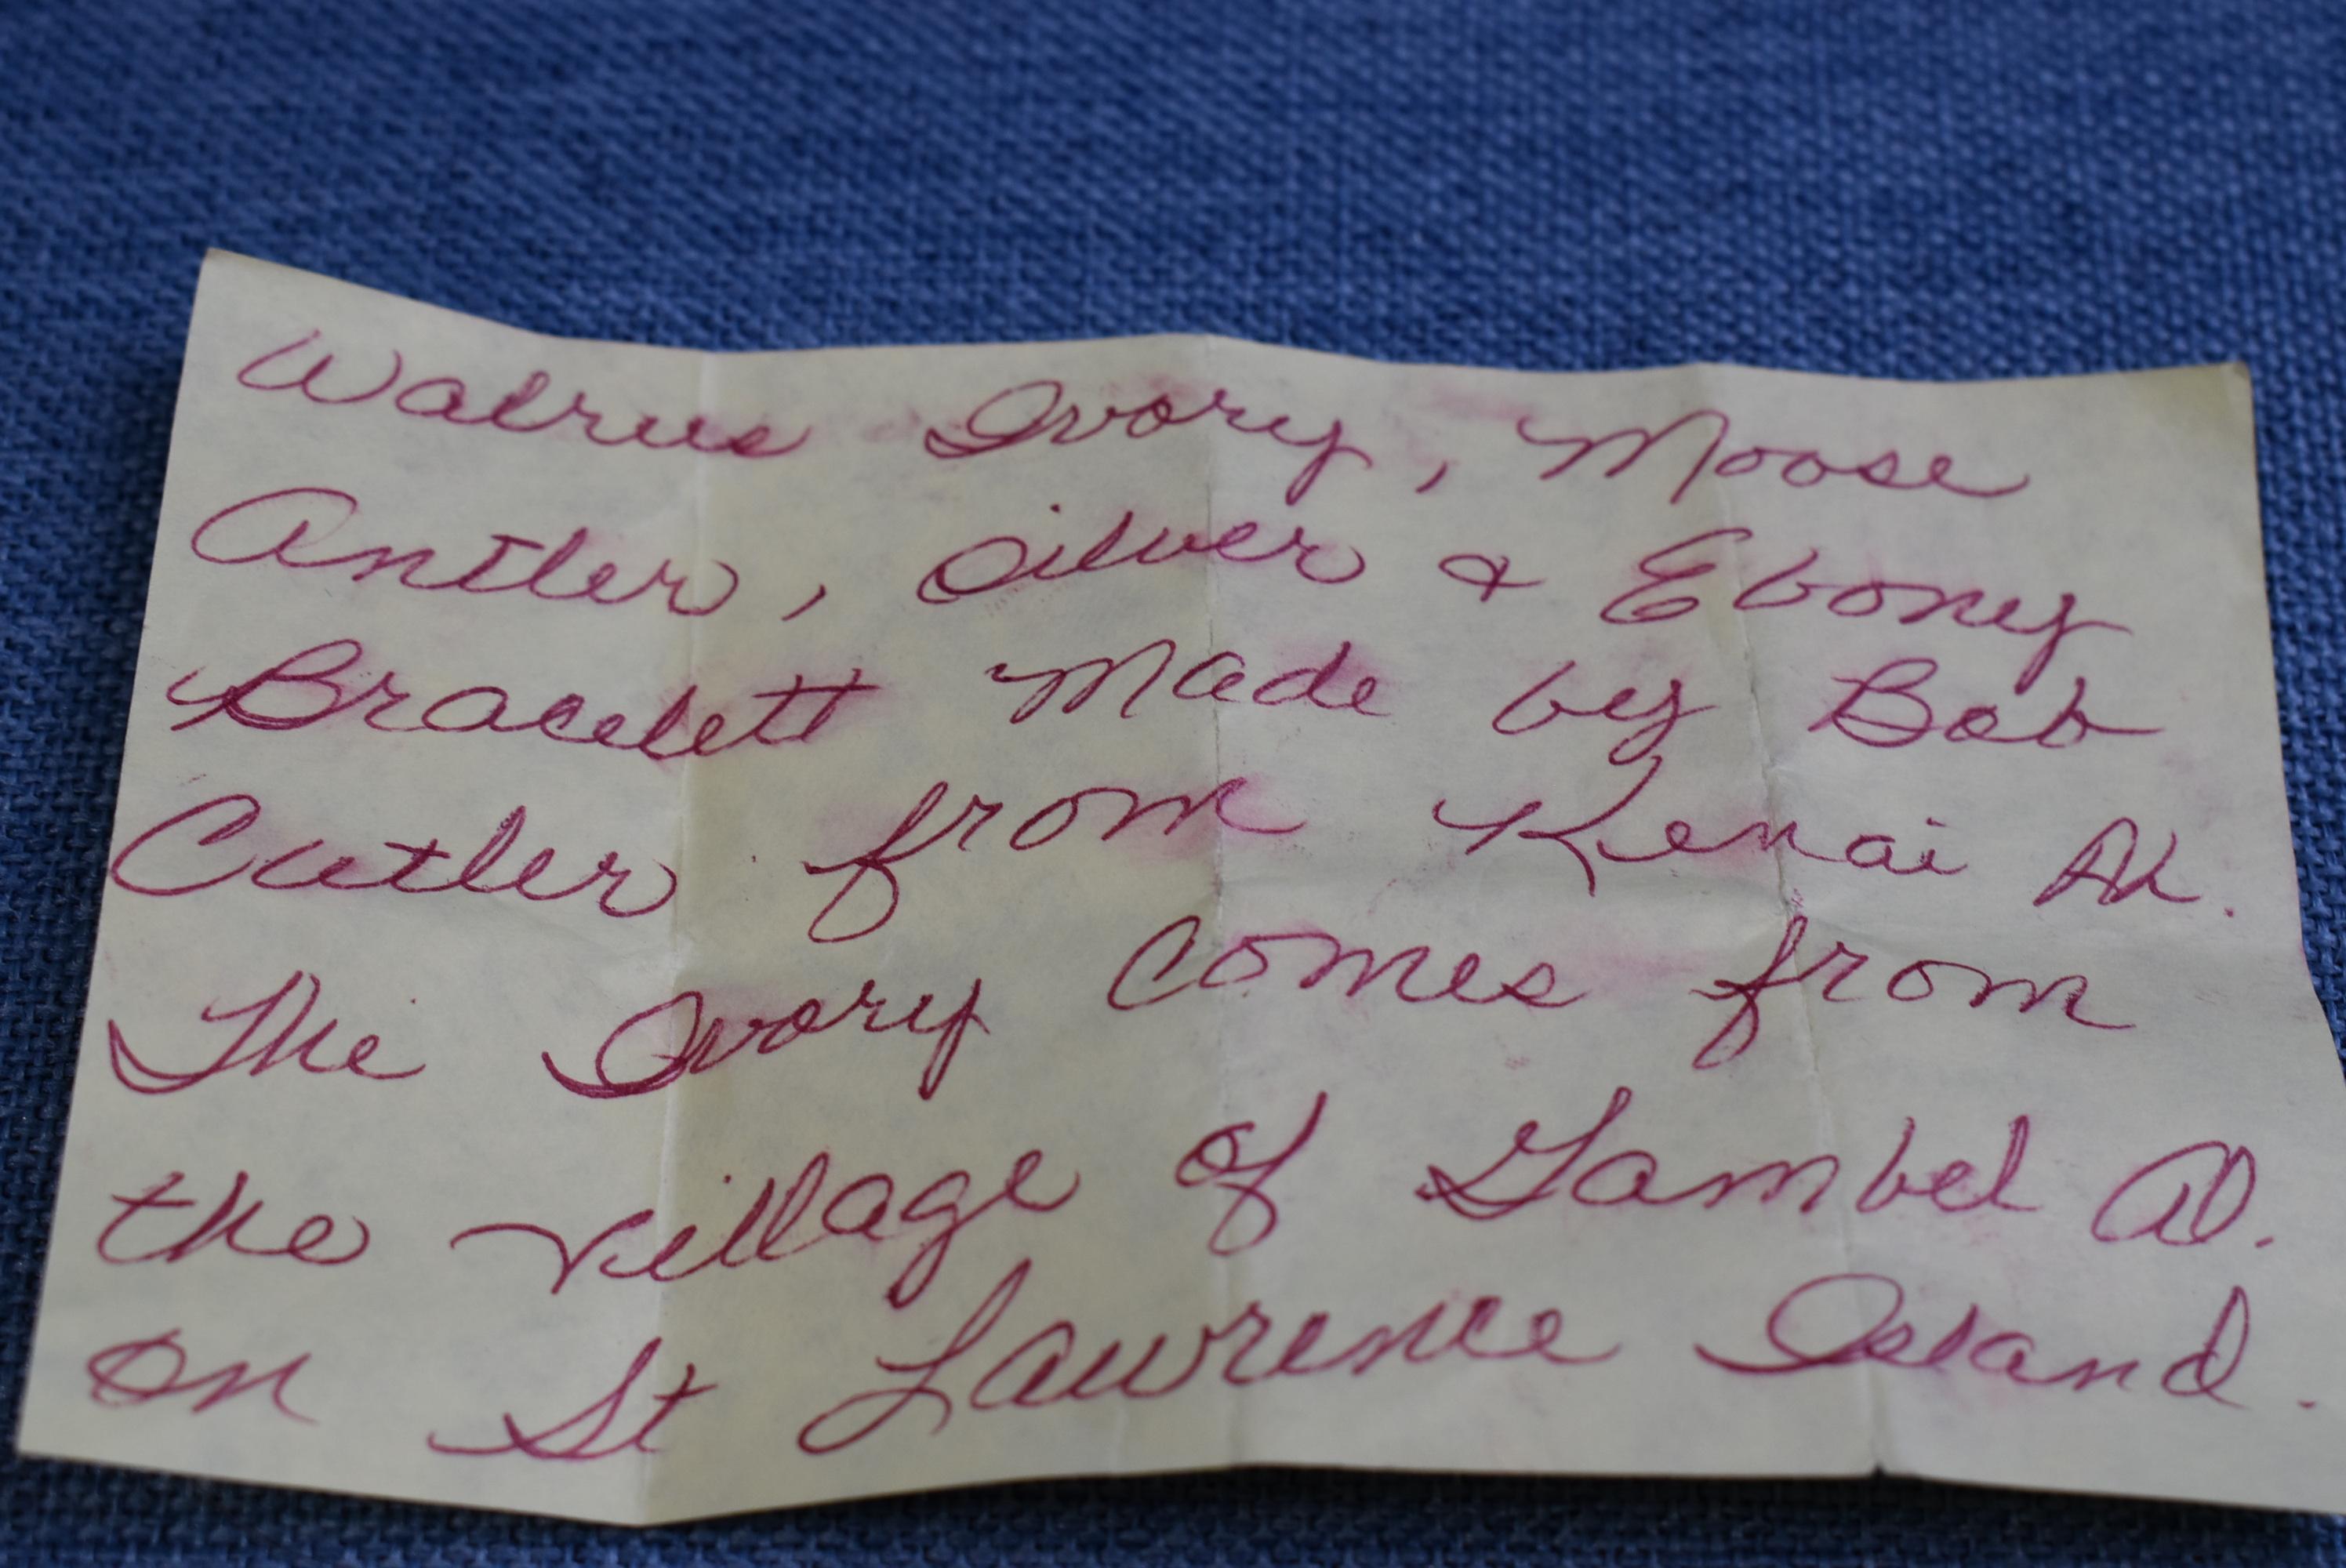 Walrus Ivory, Moose
Antler, Silver & Ebony
Bracelett Made by Bob
Cutler from Kenai AK.
The Ivory comes from
the village of Gambel
on St Lawrence Island.